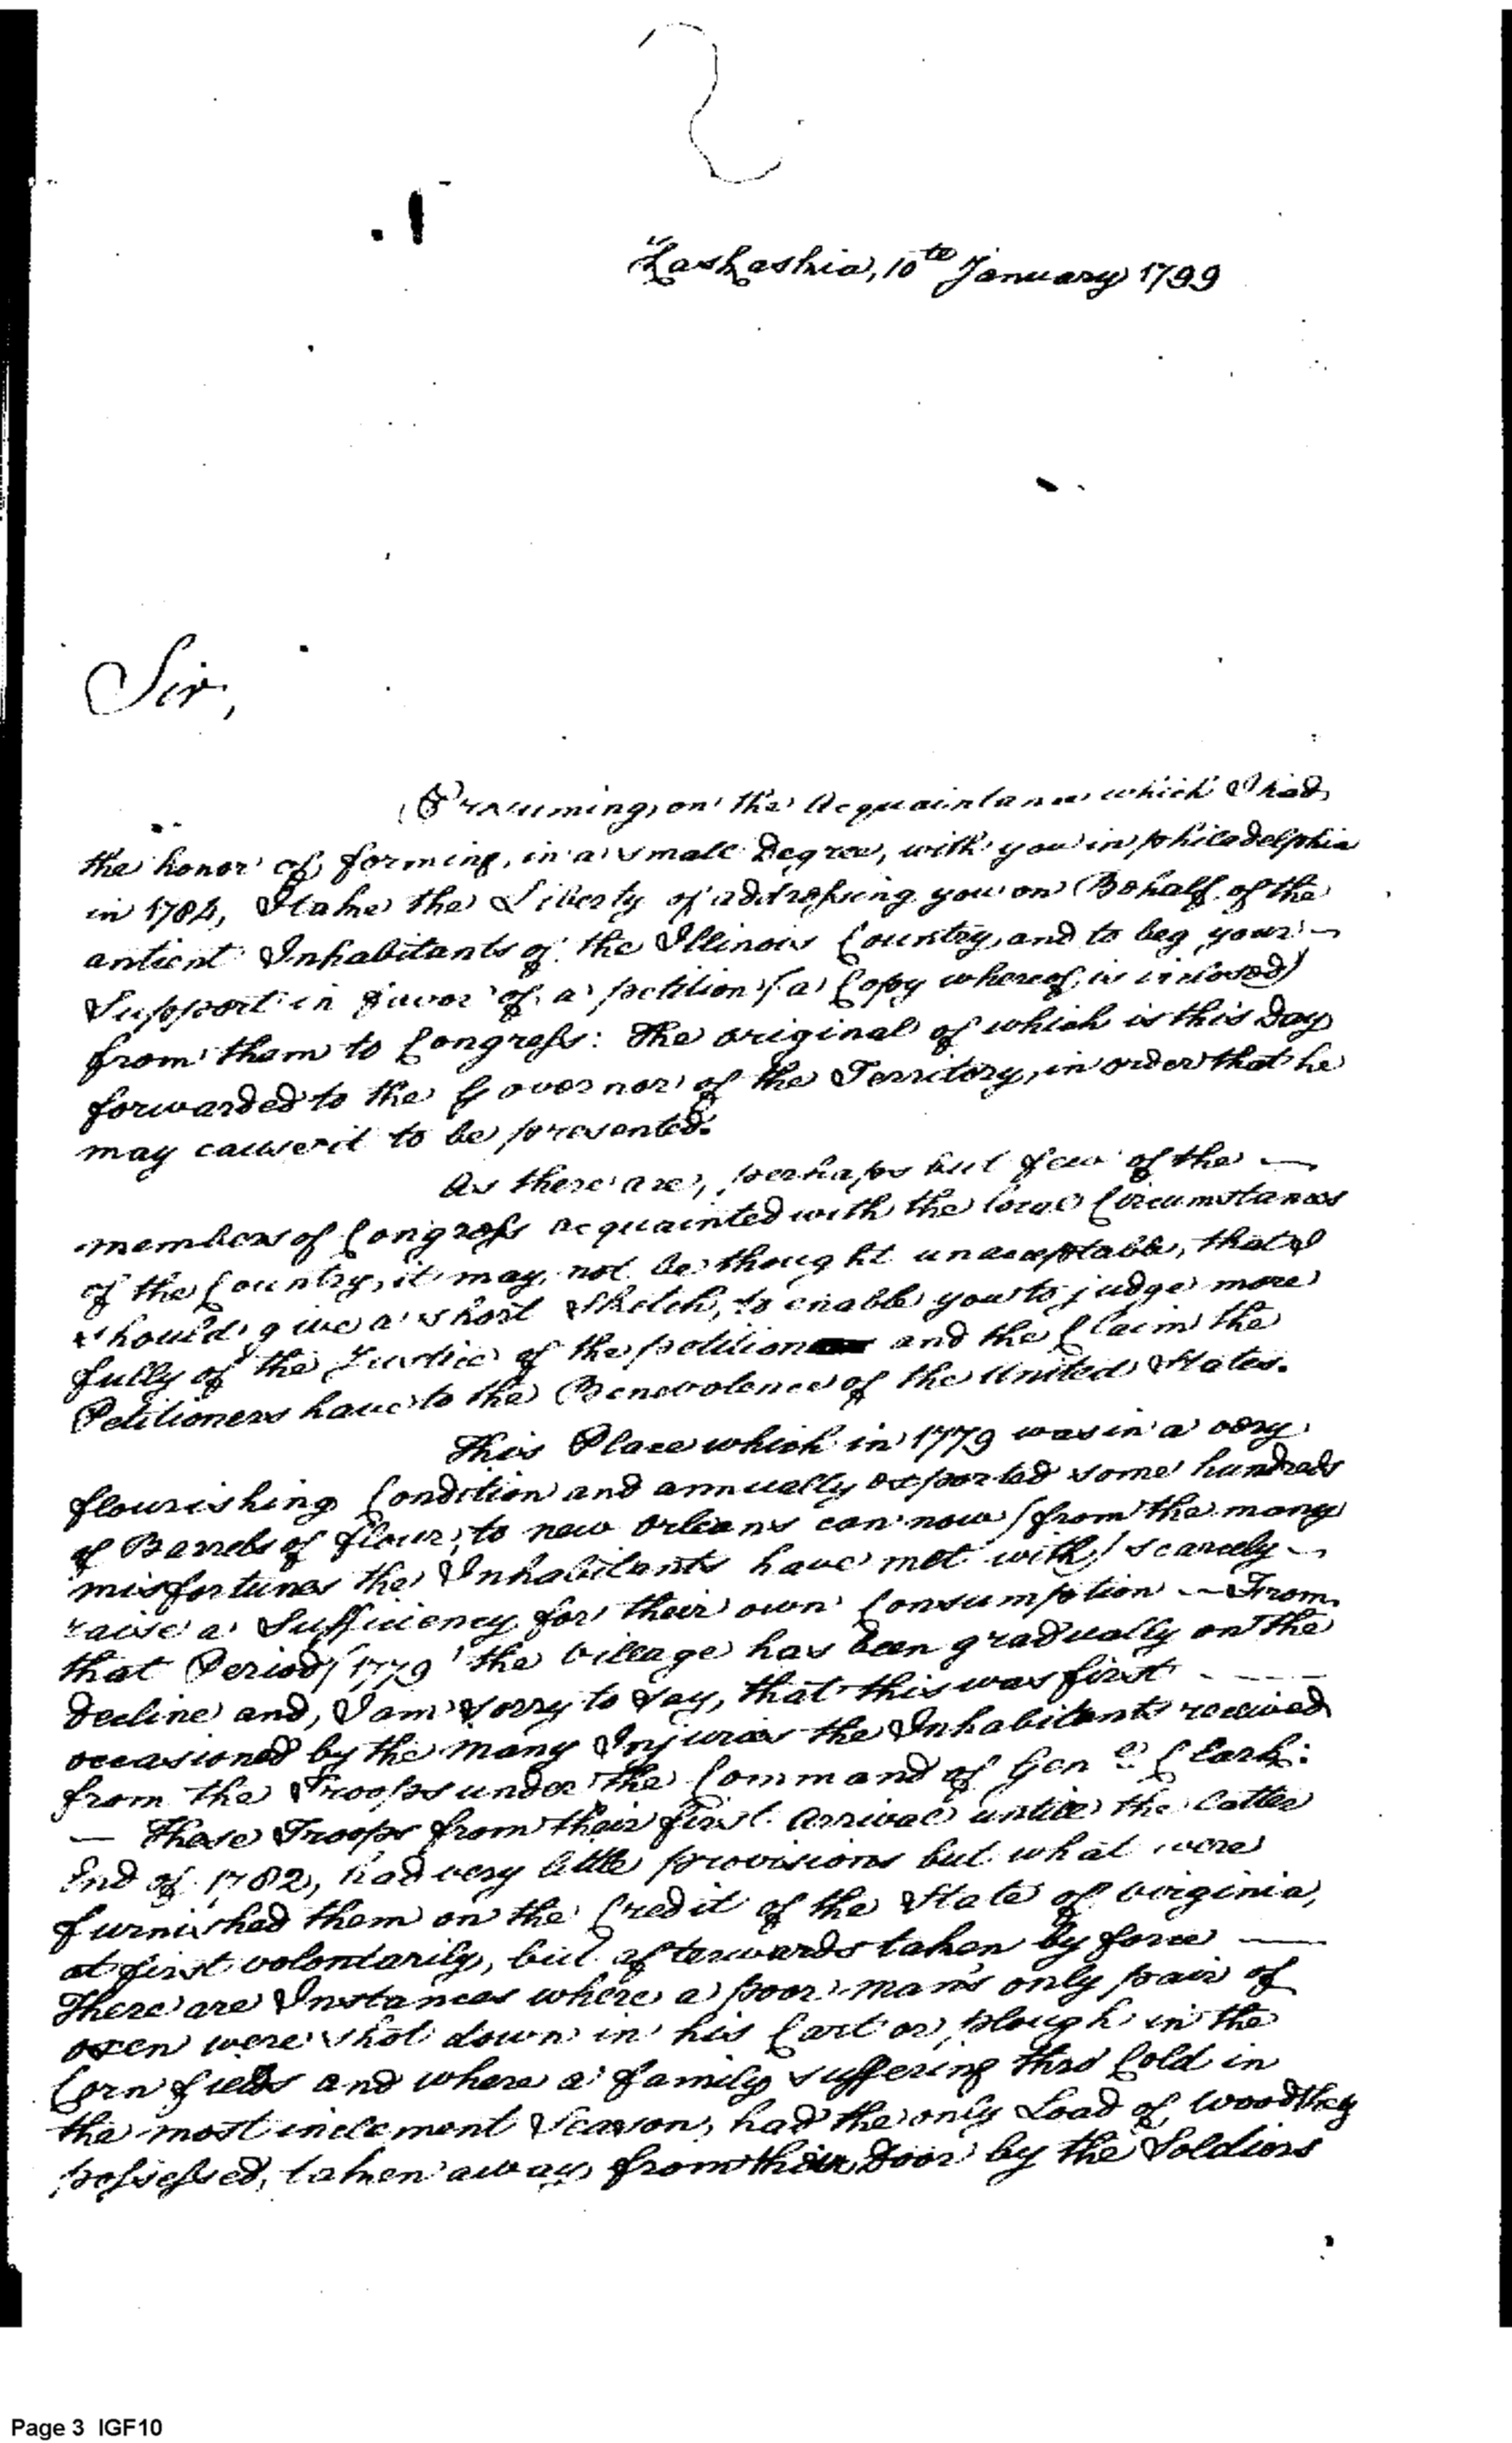 Kaskaskia, 10th January 1799
Sir,
Presuming on the Acquaintance which I had
the honor of forming, in a small Degree, with you in philadelphia
in 1784, I take the Liberty of addressing you on Behalf of the
antient Inhabitants of the Illinois Country, and to beg your -
Support in favor of a petition (a Copy whereof is inclosed)
from them to Congress: The original of which is this Day
forwarded to the Governor of the Territory, in order that he
may cause it to be presented.
As there are, perhaps but few of the —
members of Congress acquainted with the local Circumstances
of the Country, it may not be thought unacceptable, that I
should give a short Sketch, to enable you to judge more
fully of the Justice of the petition and the Claim the
Petitioners have to the Benevolence of the United States.
This Place which in 1779 was in a very
flourishing Condition and annually exported some hundreds
of Barrels of flour, to new Orleans can now (from the many
misfortunes the Inhabitants have met with) scarcely -
raise a Sufficiency for their own Consumption - From
that Period (1779) the village has been gradually on the
decline and, I am sorry to say, that this was first - - - -
occasioned by the many Injuries the Inhabitants received
from the Troops under the Command of Genl Clark:
— These Troops from their first Arrival untill the latter
End of 1782, had very little provisions but what were
furnished them on the Credit of the State of virginia,
at first volontarily, but afterwards taken by force —
There are Instances where a poor man's only pair of
oxen were shot down in his Cart or plough in the
Corn fields and where a family suffering thro Cold in
the most inclement Season, had the only Load of wood they
possessed, taken away from their Door by the Soldiers
Page 3 IGF10